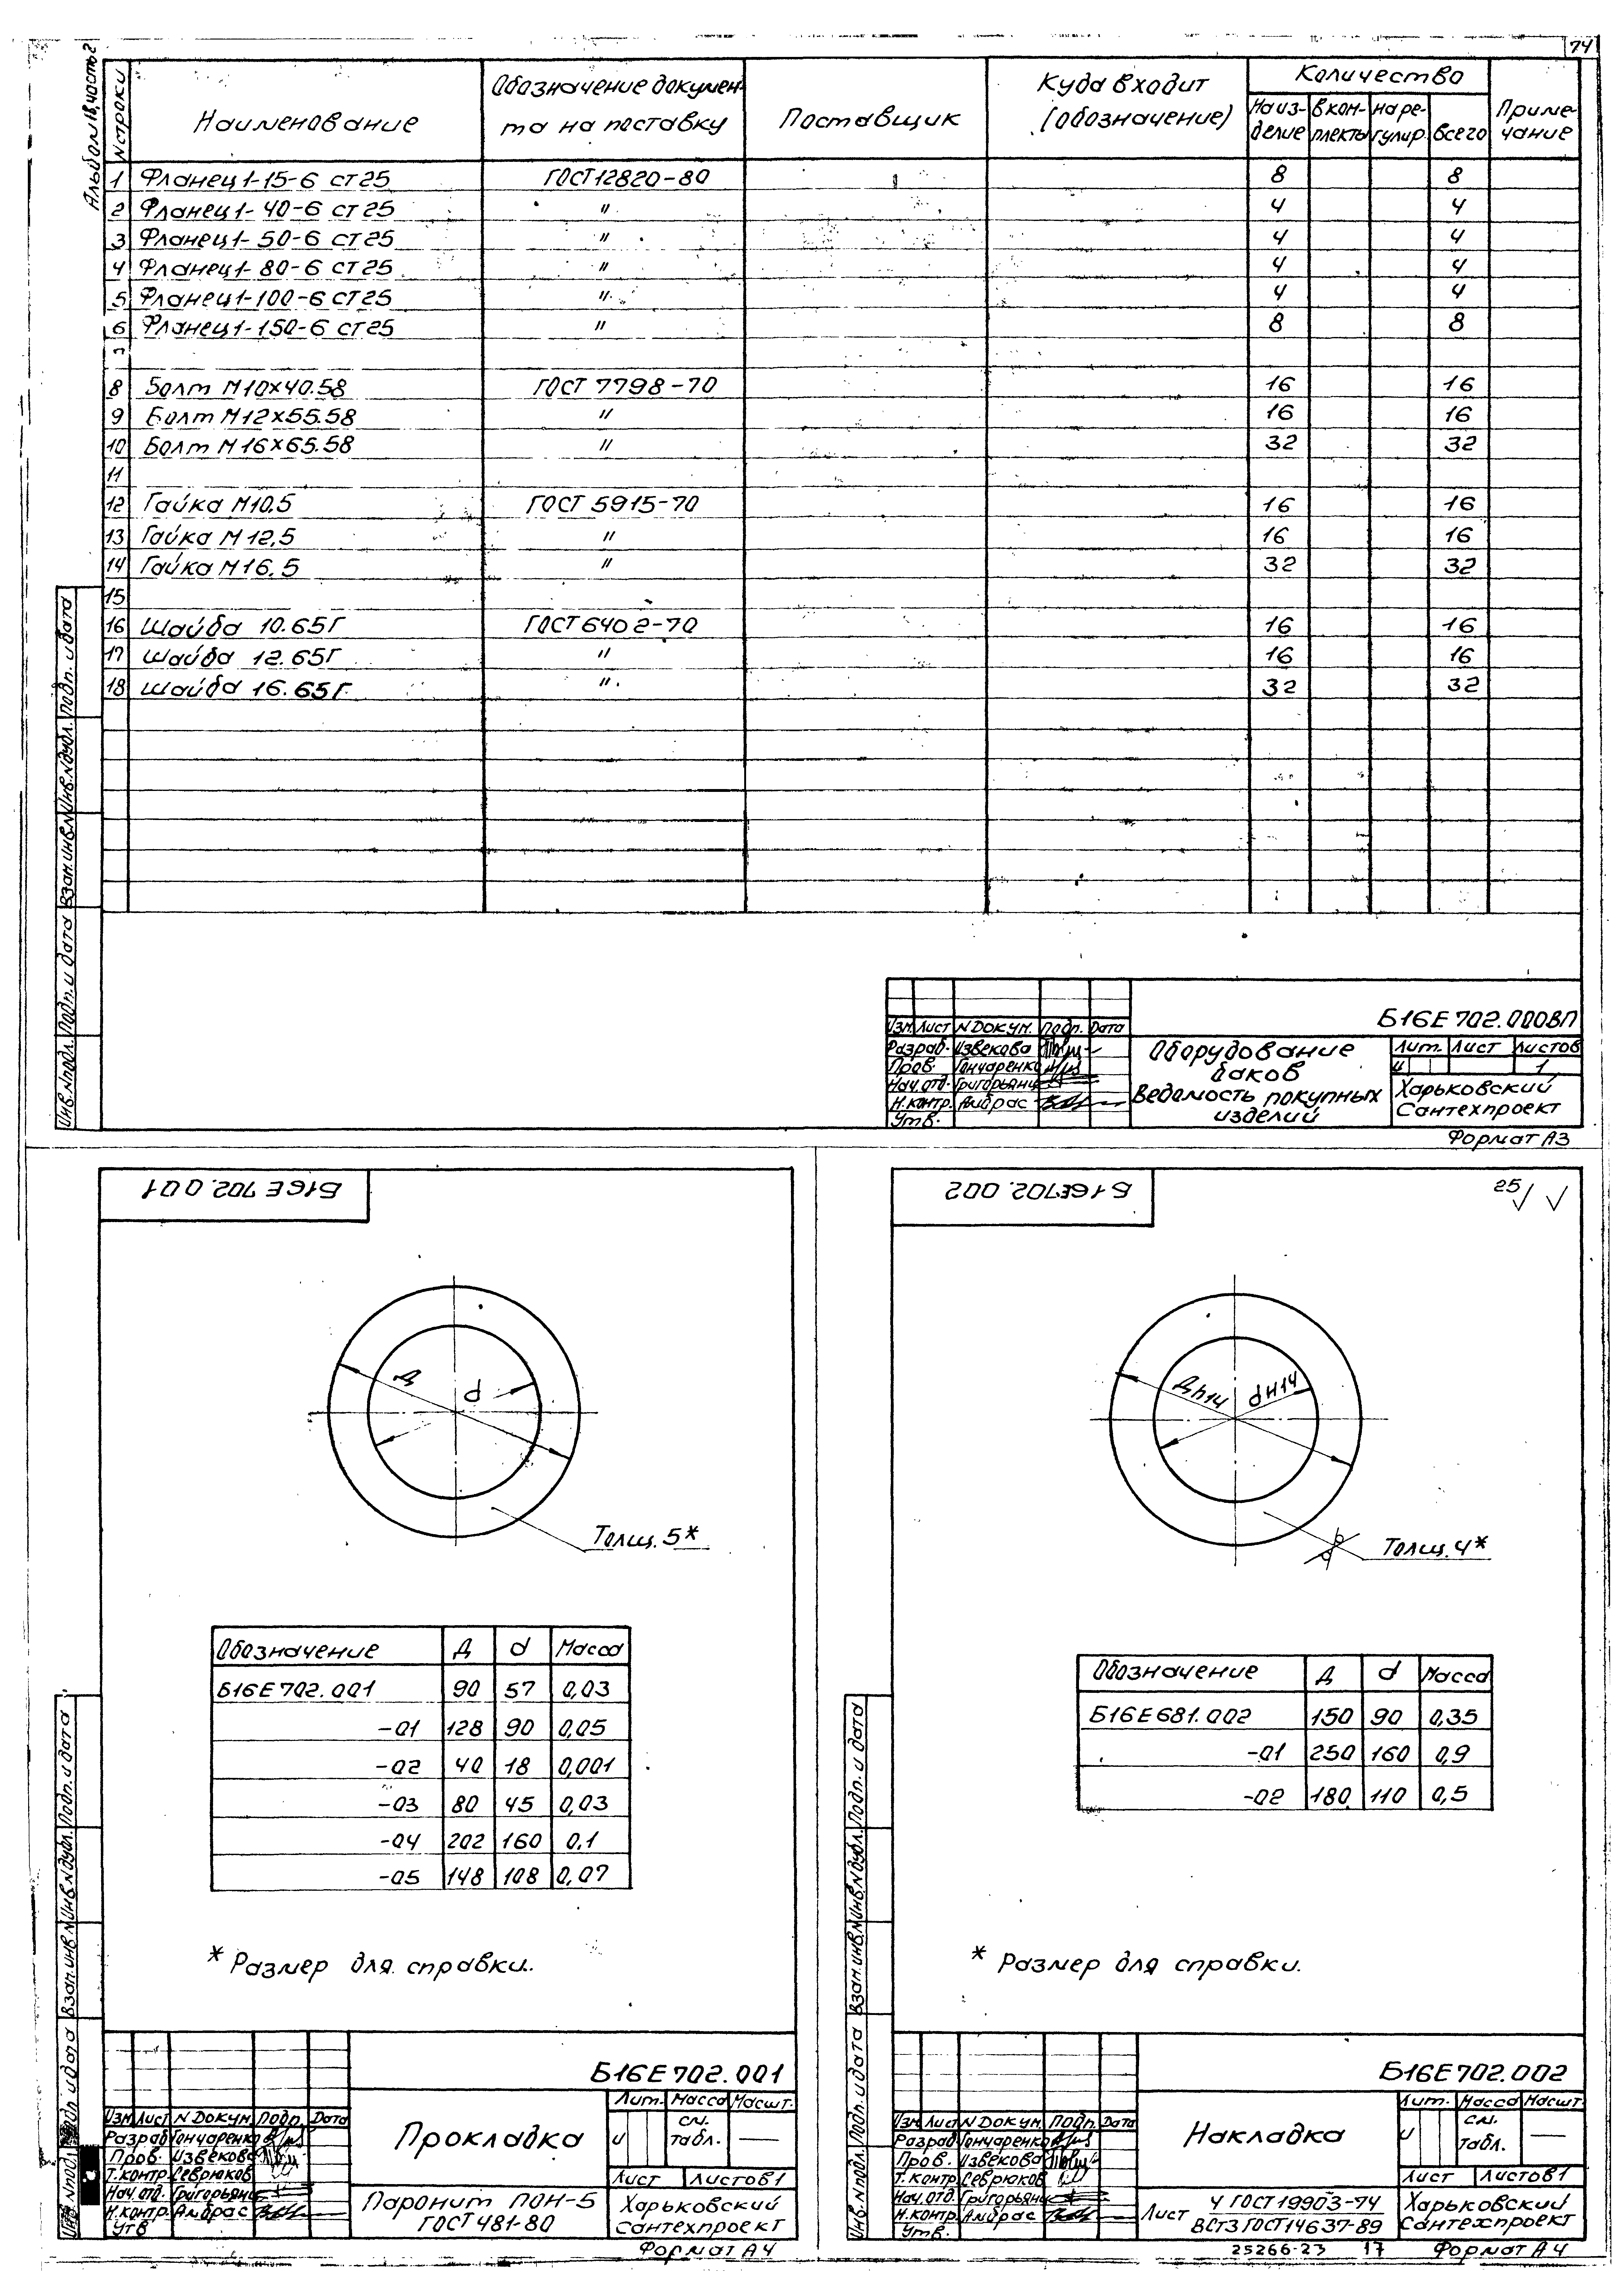 74
Альбом 18, часть 2
N строки Наименование Обозначение документа на поставку Поставщик Куда входит (обозначение) Количество Примечание
На изделие в комплекты на регулир. всего
1 Фланец 1-15-6 ст 25 ГОСТ 12820-80 8 8
2 Фланец 1-40-6 ст 25 " 4 4
3 Фланец 1-50-6 ст 25 " 4 4
4 Фланец 1-80-6 ст 25 " 4 4
5 Фланец 1-100-6 ст 25 " 4 4
6 Фланец 1-150-6 ст 25 " 8 8
7
8 Болт М10х40.58 ГОСТ 7798-70 16 16
9 Болт М12х55.58 " 16 16
10 Болт М16х65.58 " 32 32
11
12 Гайка М10,5 ГОСТ 5915-70 16 16
13 Гайка М12,5 " 16 16
14 Гайка М16,5 " 32 32
15
16 Шайба 10.65Г ГОСТ 6402-70 16 16
17 Шайба 12.65Г " 16 16
18 Шайба 16.65Г " 32 32
Инв.N подл. Подп. и дата Взам.инв.N Инв.N дубл. Подп. и дата
Б16Е702.000ВП
Изм. Лист N Докум. Подп. Дата
Разраб. Извекова
Пров. Гончаренко
Нач.отд. Григорьянц
Н.контр. Амбрас
Утв.
Оборудование
баков
Ведомость покупных
изделий
Лит. Лист Листов
и 1
Харьковский
Сантехпроект
Формат А3
Б16Е702.001
Д
d
Толщ.5*
Обозначение Д d Масса
Б16Е702.001 90 57 0,03
-01 128 90 0,05
-02 40 18 0,001
-03 80 45 0,03
-04 202 160 0,1
-05 148 108 0,07
* Размер для справки.
Инв.N подл. Подп. и дата Взам.инв.N Инв.N дубл. Подп. и дата
Б16Е702.001
Изм Лист N Докум. Подп. Дата
Разраб Гончаренко
Пров. Извекова
Т.контр. Севрюков
Нач.отд. Григорьянц
Н.контр. Амбрас
Утв
Прокладка
Лит. Масса Масшт.
и см. табл. —
Лист Листов 1
Паронит ПОН-5
ГОСТ 481-80
Харьковский
Сантехпроект
Формат А4
Б16Е702.002
25
Дh14
dH14
Толщ.4*
Обозначение Д d Масса
Б16Е681.002 150 90 0,35
-01 250 160 0,9
-02 180 110 0,5
* Размер для справки.
Инв.N подл. Подп. и дата Взам.инв.N Инв.N дубл. Подп. и дата
Б16Е702.002
Изм Лист N Докум. Подп. Дата
Разраб Гончаренко
Пров. Извекова
Т.контр. Севрюков
Нач.отд. Григорьянц
Н.контр. Амбрас
Утв.
Накладка
Лит. Масса Масшт.
и см. табл. —
Лист Листов 1
Лист 4 ГОСТ 19903-74
ВСт3 ГОСТ 14637-89
Харьковский
Сантехпроект
25266-23 17 Формат А4